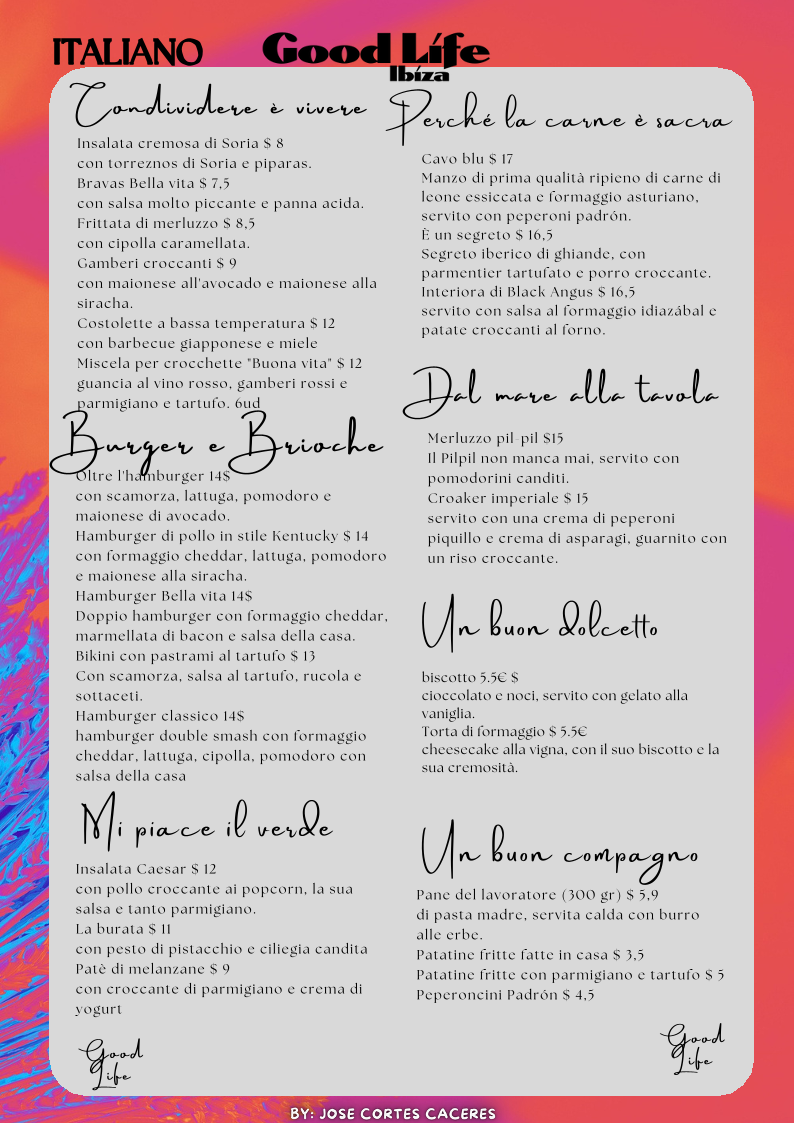 ITALIANO
Good Lífe
Ibíza
Condividere è vivere
Insalata cremosa di Soria $ 8
con torreznos di Soria e piparas.
Bravas Bella vita $ 7,5
con salsa molto piccante e panna acida.
Frittata di merluzzo $ 8,5
con cipolla caramellata.
Gamberi croccanti $ 9
con maionese all'avocado e maionese alla
siracha.
Costolette a bassa temperatura $ 12
con barbecue giapponese e miele
Miscela per crocchette "Buona vita" $ 12
guancia al vino rosso, gamberi rossi e
parmigiano e tartufo. 6ud
Burger e Brioche
Oltre l'hamburger 14$
con scamorza, lattuga, pomodoro e
maionese di avocado.
Hamburger di pollo in stile Kentucky $ 14
con formaggio cheddar, lattuga, pomodoro
e maionese alla siracha.
Hamburger Bella vita 14$
Doppio hamburger con formaggio cheddar,
marmellata di bacon e salsa della casa.
Bikini con pastrami al tartufo $ 13
Con scamorza, salsa al tartufo, rucola e
sottaceti.
Hamburger classico 14$
hamburger double smash con formaggio
cheddar, lattuga, cipolla, pomodoro con
salsa della casa
Mi piace il verde
Insalata Caesar $ 12
con pollo croccante ai popcorn, la sua
salsa e tanto parmigiano.
La burata $ 11
con pesto di pistacchio e ciliegia candita
Patè di melanzane $ 9
con croccante di parmigiano e crema di
yogurt
Good
Life
Perché la carne è sacra
Cavo blu $ 17
Manzo di prima qualità ripieno di carne di
leone essiccata e formaggio asturiano,
servito con peperoni padrón.
È un segreto $ 16,5
Segreto iberico di ghiande, con
parmentier tartufato e porro croccante.
Interiora di Black Angus $ 16,5
servito con salsa al formaggio idiazábal e
patate croccanti al forno.
Dal mare alla tavola
Merluzzo pil-pil $15
Il Pilpil non manca mai, servito con
pomodorini canditi.
Croaker imperiale $ 15
servito con una crema di peperoni
piquillo e crema di asparagi, guarnito con
un riso croccante.
Un buon dolcetto
biscotto 5.5€ $
cioccolato e noci, servito con gelato alla
vaniglia.
Torta di formaggio $ 5.5€
cheesecake alla vigna, con il suo biscotto e la
sua cremosità.
Un buon compagno
Pane del lavoratore (300 gr) $ 5,9
di pasta madre, servita calda con burro
alle erbe.
Patatine fritte fatte in casa $ 3,5
Patatine fritte con parmigiano e tartufo $ 5
Peperoncini Padrón $ 4,5
Good
Life
BY: JOSE CORTES CACERES